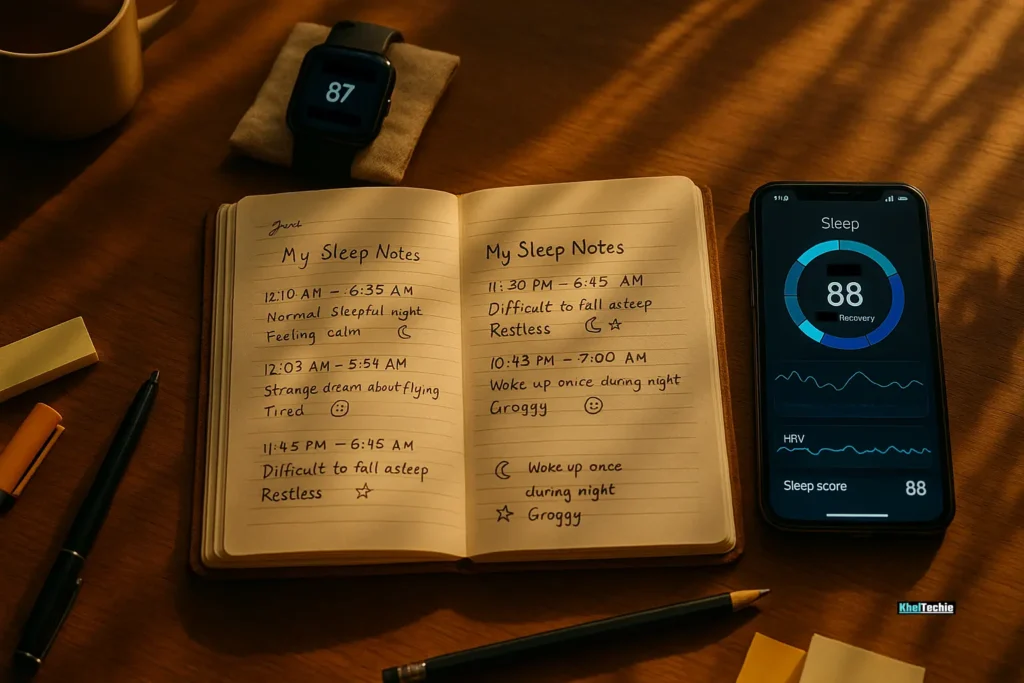 87
My Sleep Notes
12:10 AM – 6:35 AM
Normal Sleepful night
Feeling calm
12:03 AM – 5:54 AM
Strange dream about flying
Tired
11:45 PM – 6:45 AM
Difficult to fall asleep
Restless
My Sleep Notes
11:30 PM – 6:45 AM
Difficult to fall asteep
Restless
10:43 PM – 7:00 AM
Woke up onice during night
Groggy
Woke up once
during night
Groggy
Sleep
88
Recovery
HRV
Sleep score 88
KhelTechie